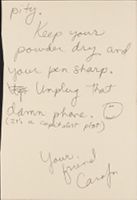 pity.
Keep your
powder dry and
your pen sharp.
Unplug that
damn phone.
(It's a capitalist plot)
Your
friend
Carolyn